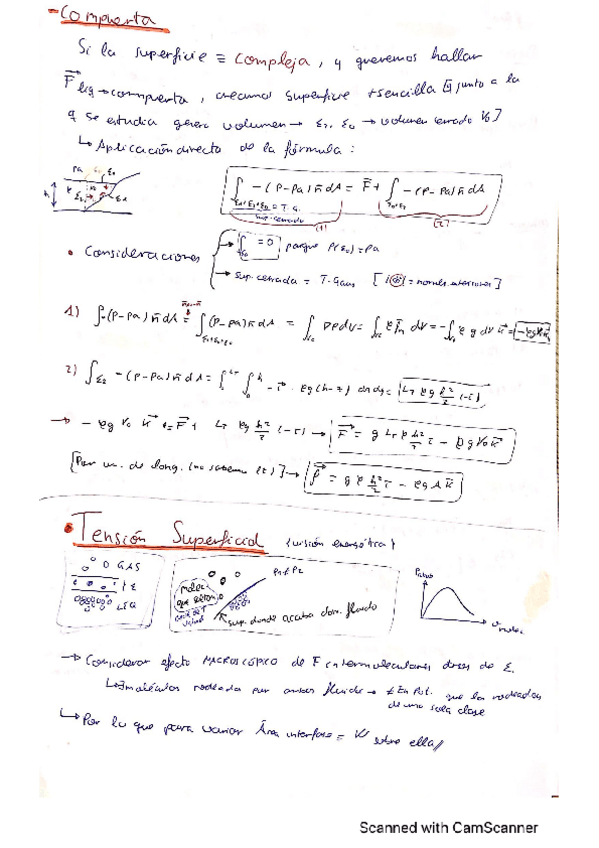 - Compuerta
Si la superficie ≡ compleja, y queremos hallar
F⃗ liq→compuerta, creamos superficie +sencilla [q junto a la
q se estudia genera volumen → Σ₂, Σ₀ → volumen cerrado V₀]
↳ Aplicación directo de la fórmula:
Pa Σ₀
h Σ₂ Σ₁
∫ -(P-Pa) n̄ dA = F̄ + ∫ -(P-Pa) n̄ dA
= T.G.
Sup. cerrada (1) (2)
• Consideraciones → ∫Σ₀ = 0 porque P(Σ₀) = Pa
→ Sup. cerrada = T. Gauss [= normales interiores]
1) ∫-(P-Pa) n̄ dA = ∫ (P-Pa) n̄ dA = ∫ ∇P dV = ∫ ρ f̄m dV = -∫ ρ g dV k̄ = -ρgV₀k̄
2) ∫Σ₂ -(P-Pa) n̄ dA = ∫ ∫ -ī · ρg(h-z) dz dy = LT ρg h²/2 (-ī)
→ -ρg V₀ k̄ = F̄ + LT ρg h²/2 (-ī) → F̄ = g LT ρ h²/2 ī - ρgV₀k̄
[Por u. de long. (no sabemos LT)] → f̄ = g ρ h²/2 ī - ρg A k̄
• Tensión Superficial (visión energética)
GAS
LIQ
P₁≠P₂
Sup. donde acaba dom. fluido
→ Considerar efecto MACROSCÓPICO de F intermoleculares de Σ.
↳ moléculas rodeada por ambos fluidos → ≠ En Pot. que las rodeadas
de una sola clase
↳ Por lo que para variar Área interfase = W sobre ella//
Scanned with CamScanner